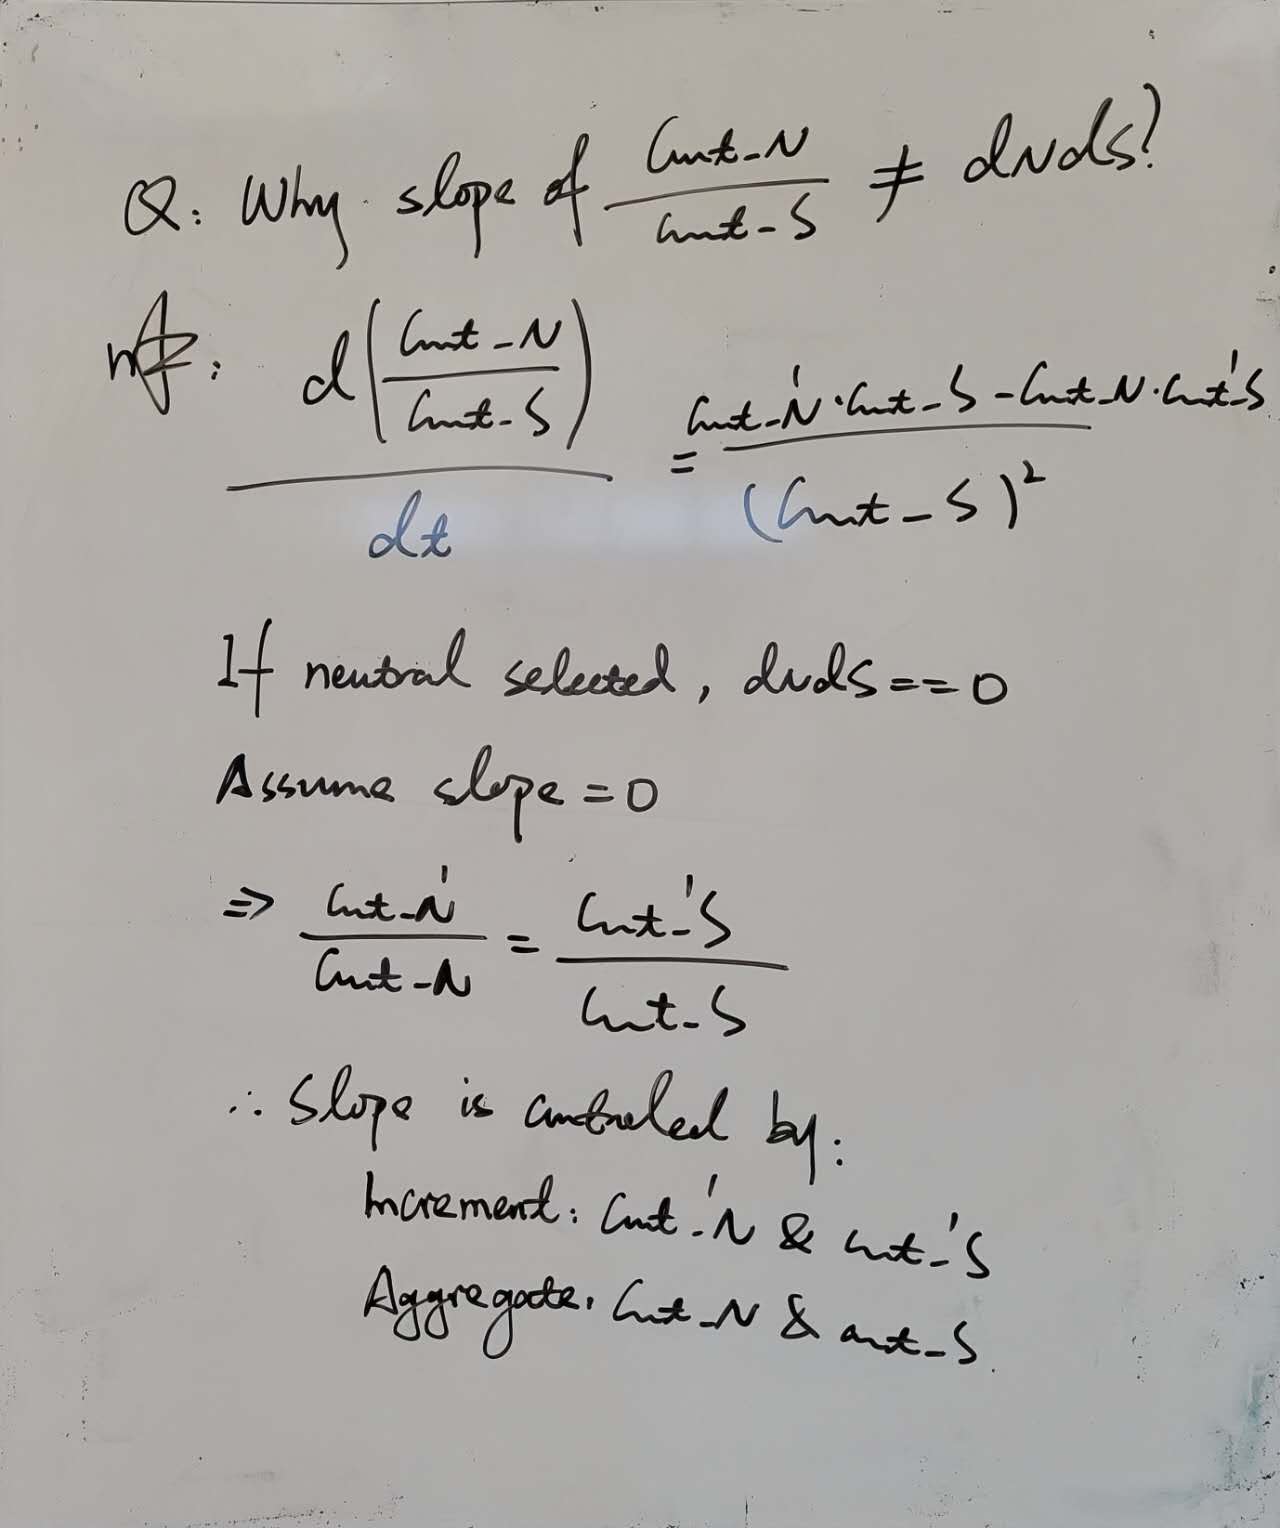 Q: Why slope of \frac{Cnt-N}{Cnt-S} ≠ dNdS?
\frac{d(\frac{Cnt-N}{Cnt-S})}{dt} = \frac{Cnt-N' · Cnt-S - Cnt-N · Cnt-'S}{(Cnt-S)^2}
If neutral selected, dNdS == 0
Assume slope = 0
⇒ \frac{Cnt-N'}{Cnt-N} = \frac{Cnt-'S}{Cnt-S}
∴ Slope is controled by:
Increment: Cnt-'N & Cnt-'S
Aggregate: Cnt-N & Cnt-S